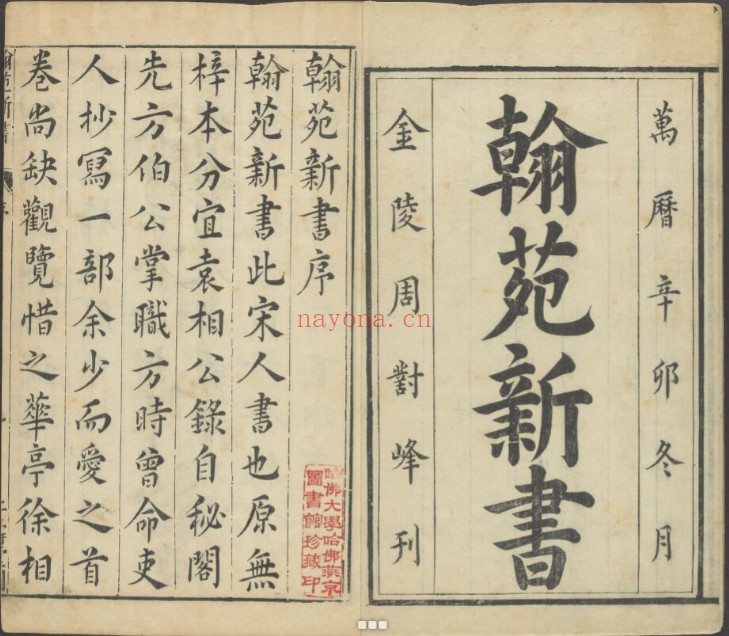 萬曆辛卯冬月
翰苑新書
金陵周對峰刊
翰苑新書序
翰苑新書此宋人書也原無
梓本分宜袁相公錄自秘閣
先方伯公掌職方時曾命吏
人抄寫一部余少而愛之首
卷尚缺觀覽惜之華亭徐相
哈佛大學哈佛燕京
圖書館珍藏印
nayona.cn